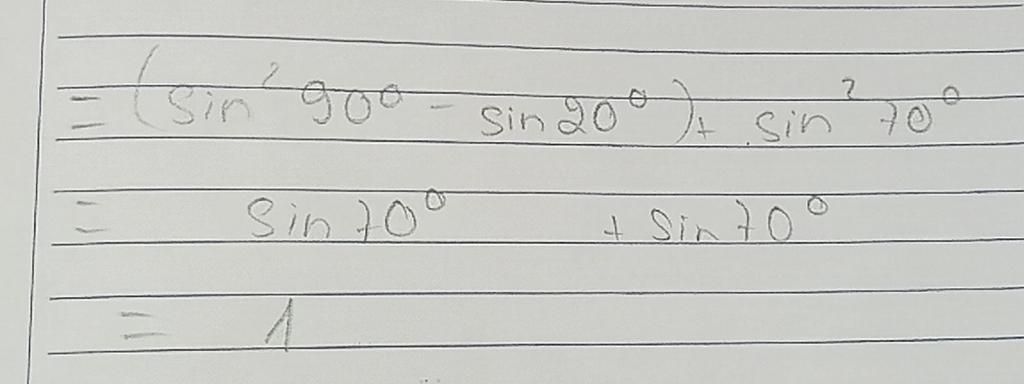 = (sin² 90° - sin 20°) + sin² 70°
= sin 70° + sin 70°
= 1